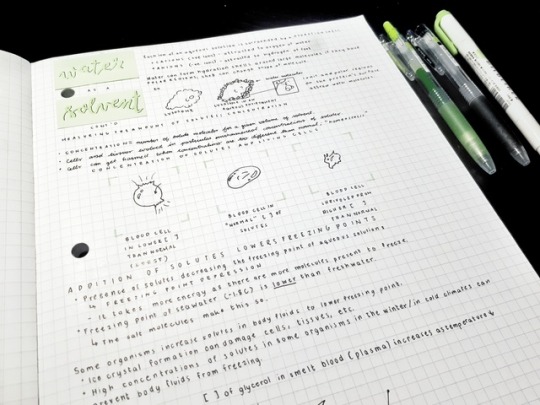 water
as a
solvent
Each ion of an aqueous solution is surrounded by a
attracted to oxygen of water
attracted to hydrogen of water
Water can form hydration shells around large molecules if they have
water molecules
CONT'D
MEASURING THE AMOUNT OF SOLUTES; CONCENTRATION
• CONCENTRATION: number of solute molecules for a given volume of solvent.
• Cells and tissues involved in particular environmental concentrations of solutes
• Cells can get harmed when concentrations are too different than normal.
CONCENTRATION OF SOLUTES AND LIVING CELLS
BLOOD CELL
IN LOWER [ ]
THAN NORMAL
(BURST)
BLOOD CELL IN
"NORMAL" [ ] OF
SOLUTES
BLOOD CELL
SHRIVELED FROM
HIGHER [ ]
THAN NORMAL
ADDITION OF SOLUTES LOWERS FREEZING POINTS
• Presence of solutes decreasing the freezing point of aqueous solutions.
↳ FREEZING POINT DEPRESSION
- It takes more energy as there are more molecules present to freeze.
• Freezing point of seawater (-1.8C) is lower than freshwater.
↳ The salt molecules make this so.
Some organisms increase solutes in body fluids to lower freezing point.
• Ice crystal formation can damage cells, tissues, etc.
• High concentrations of solutes in some organisms in the winter/in cold climates can
prevent body fluids from freezing.
[ ] of glycerol in smelt blood (plasma) increases as temperature ↓